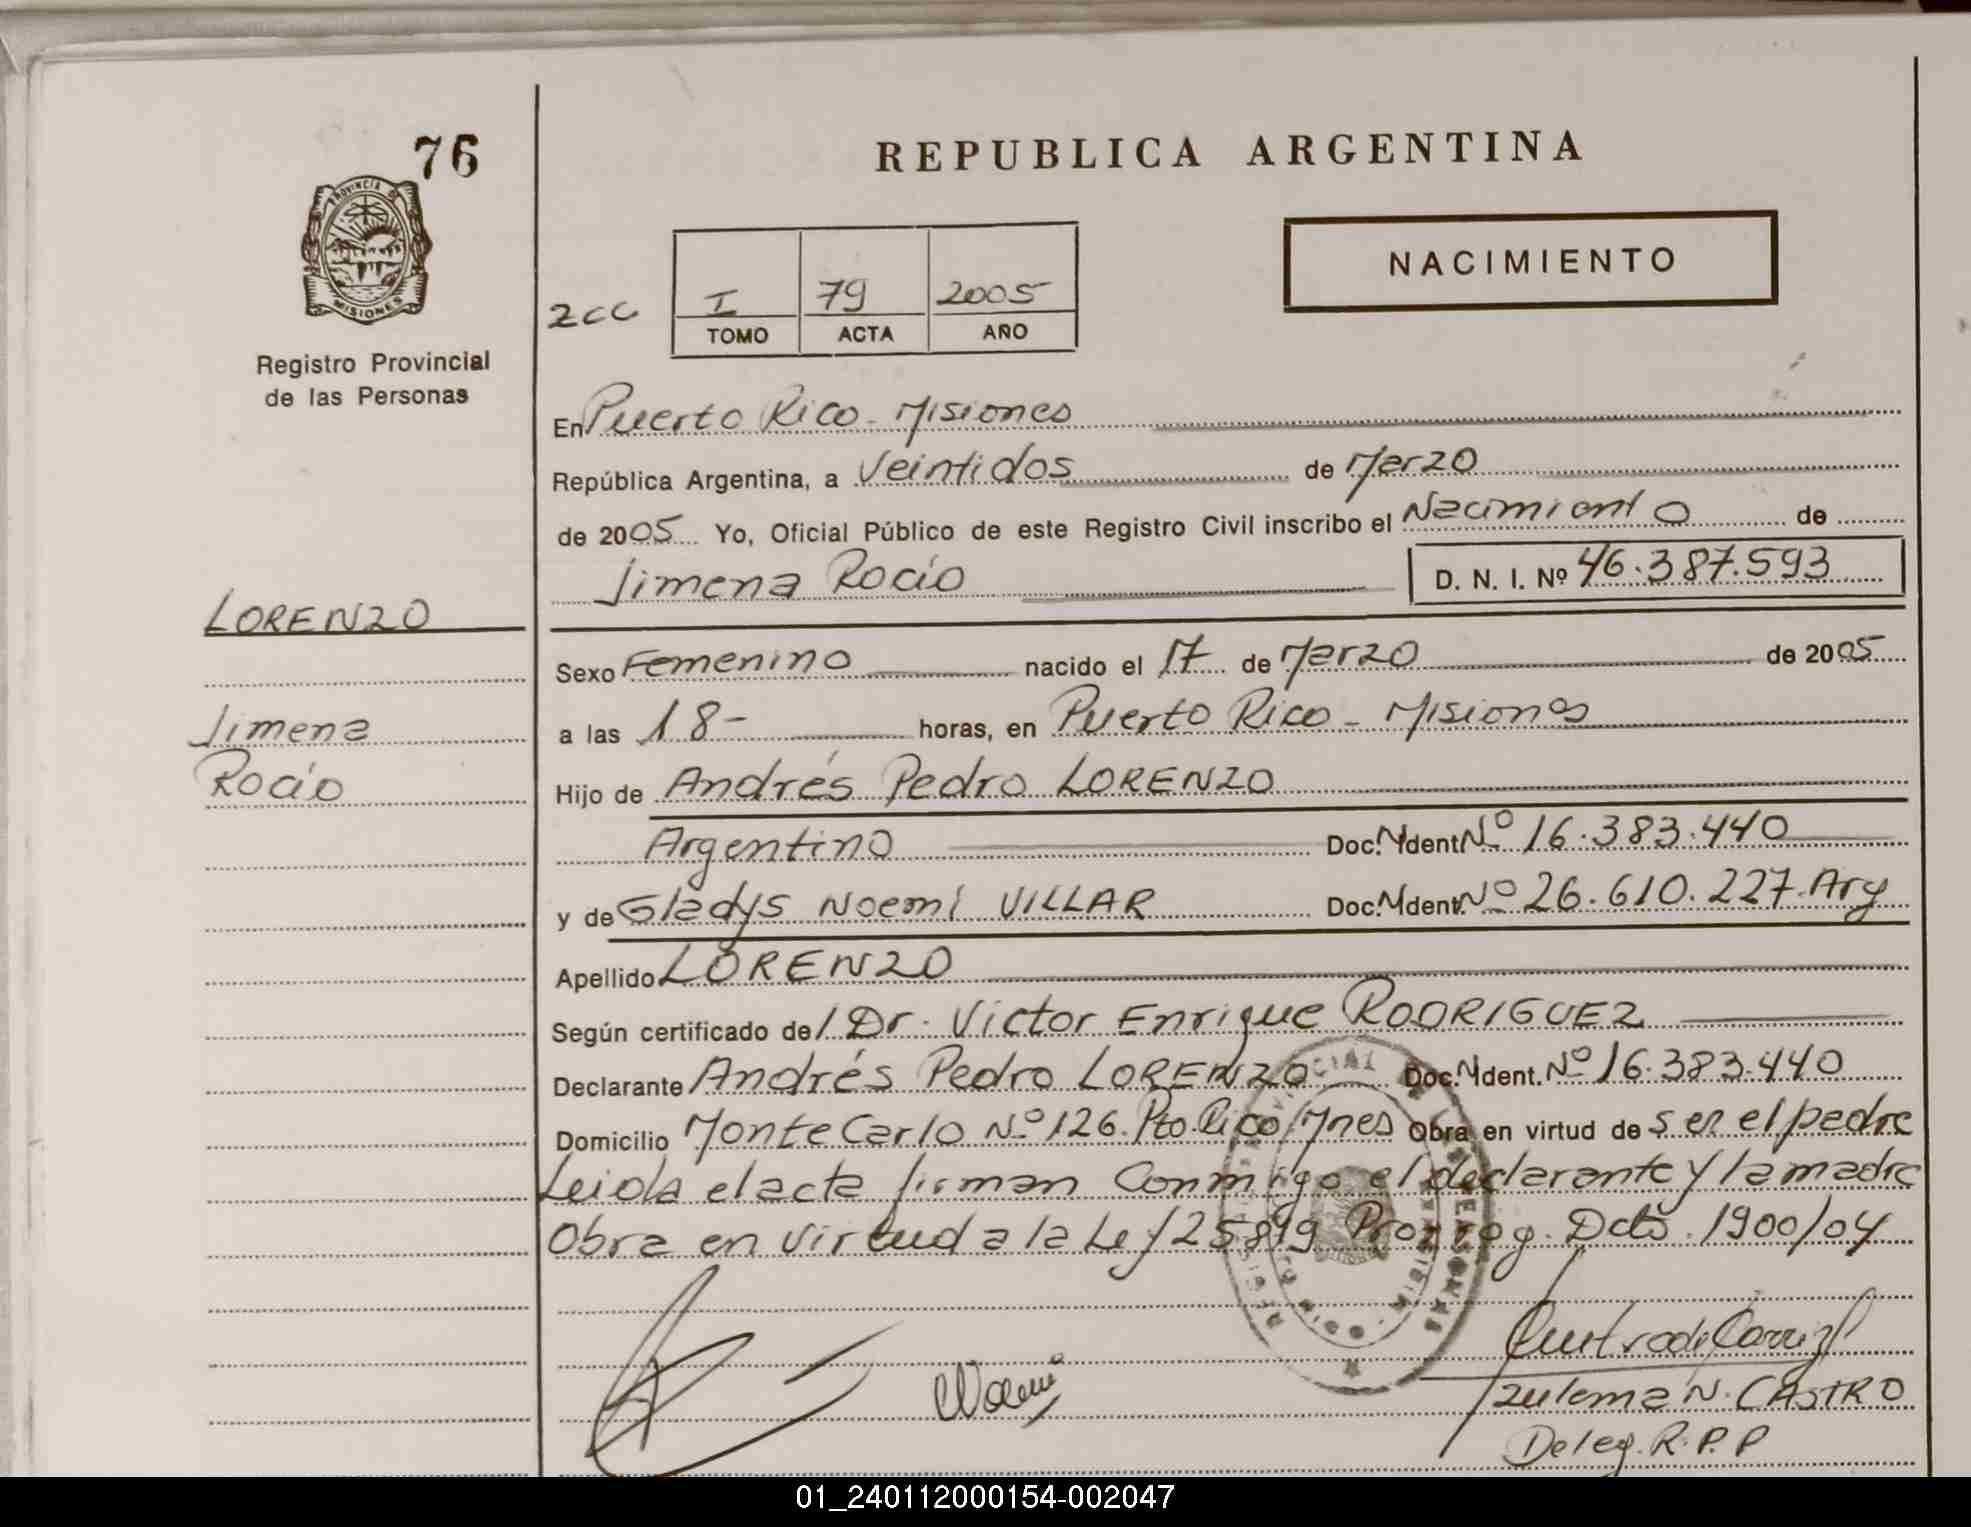 76
REPUBLICA ARGENTINA
PROVINCIA DE
MISIONES
Registro Provincial
de las Personas
NACIMIENTO
zcc
I 79 2005
TOMO ACTA AÑO
En Puerto Rico - Misiones
República Argentina, a Veintidos de Marzo
de 2005 Yo, Oficial Público de este Registro Civil inscribo el Nacimiento de
Jimena Rocío D. N. I. Nº 46.387.593
LORENZO
Jimena
Rocío
Sexo Femenino nacido el 17 de Marzo de 2005
a las 18- horas, en Puerto Rico - Misiones
Hijo de Andrés Pedro LORENZO
Argentino Doc. Ident Nº 16.383.440
y de Gladys Noemí VILLAR Doc. Ident. Nº 26.610.227. Arg
Apellido LORENZO
Según certificado de / Dr. Victor Enrique RODRIGUEZ
Declarante Andrés Pedro LORENZO Doc. Ident. Nº 16.383.440
Domicilio Monte Carlo Nº 126. Pto. Rico/Mnes Obra en virtud de ser el padre
Leida el acta firman Conmigo el declarante y la madre
Obra en virtud a la Ley 25819 Prorrog. Dcto. 1900/04
Noemi
Zulema N. CASTRO
Deleg. R.P.P
01_240112000154-002047